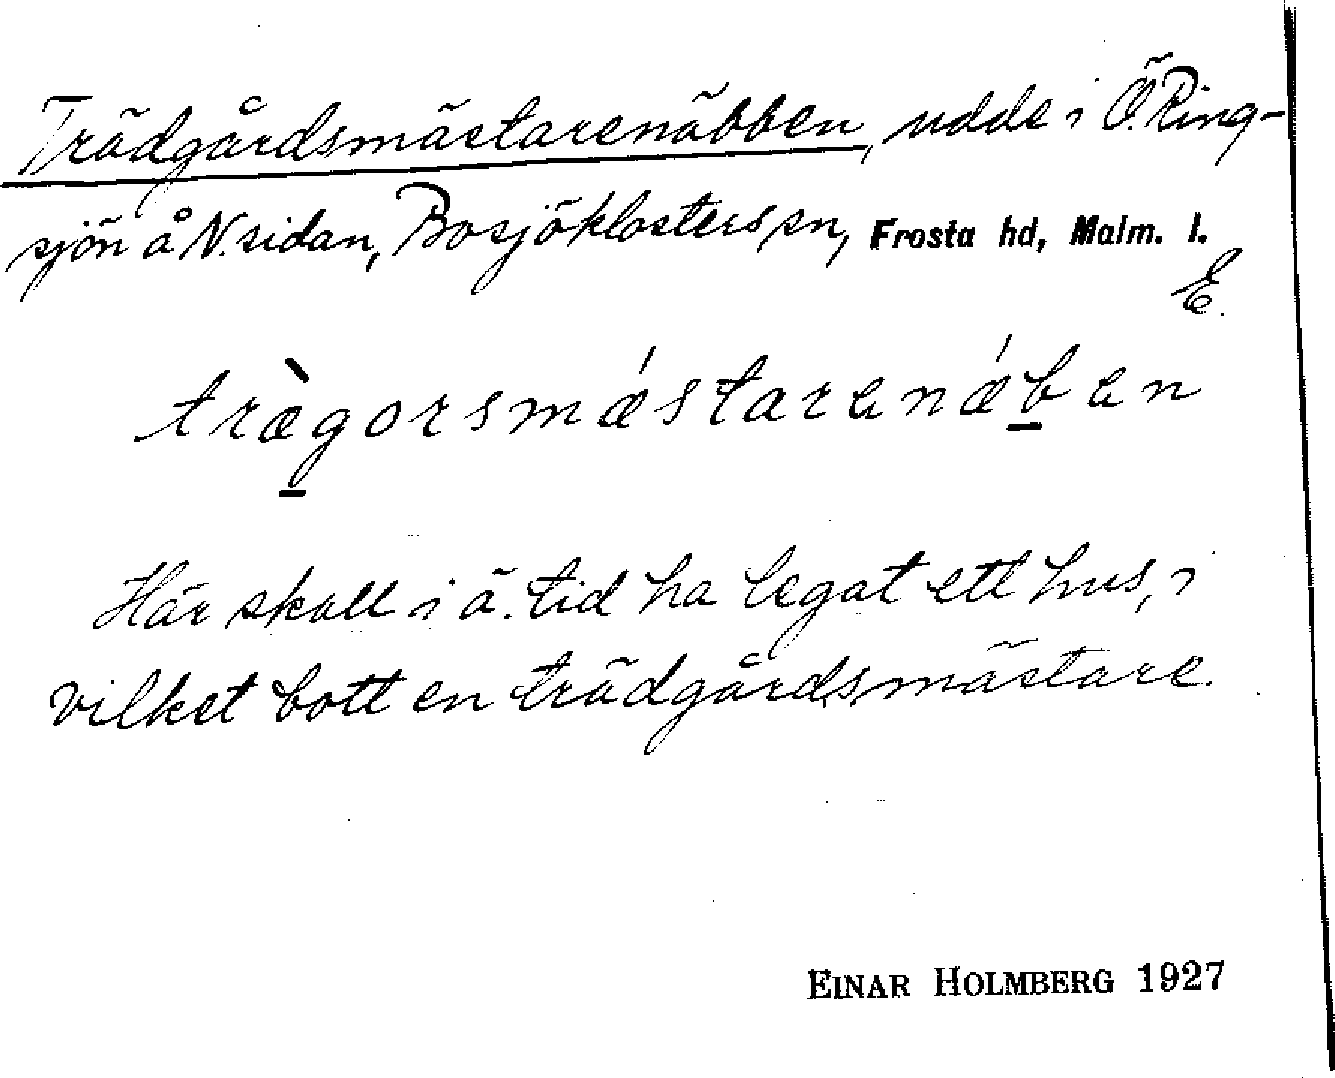 Trädgårdsmästarenäbben, udde i Ö. Ring-
sjön å N. sidan, Bosjöklosters sn, Frosta hd, Malm. l.
E.
træ̀gorsmǽstarenǽben
Här skall i ä. tid ha legat ett hus, i
vilket bott en trädgårdsmästare.
EINAR HOLMBERG 1927